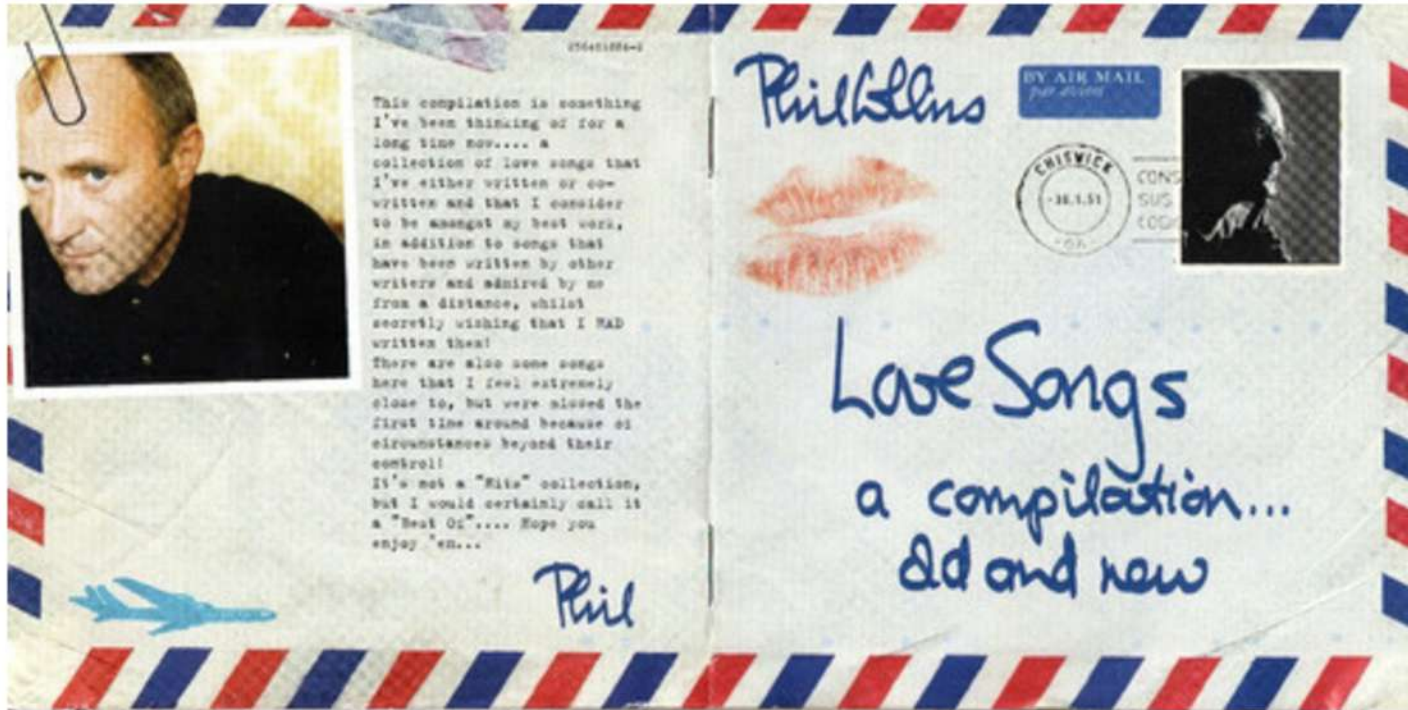 This compilation is something
I've been thinking of for a
long time now.... a
collection of love songs that
I've either written or co-
written and that I consider
to be amongst my best work,
in addition to songs that
have been written by other
writers and admired by me
from a distance, whilst
secretly wishing that I HAD
written them!
There are also some songs
here that I feel extremely
close to, but were missed the
first time around because of
circumstances beyond their
control!
It's not a "Hits" collection,
but I would certainly call it
a "Best Of".... Hope you
enjoy 'em...
Phil
Phil Collins
BY AIR MAIL
par avion
CHISWICK
CONS
SUS
Love Songs
a compilation...
old and new